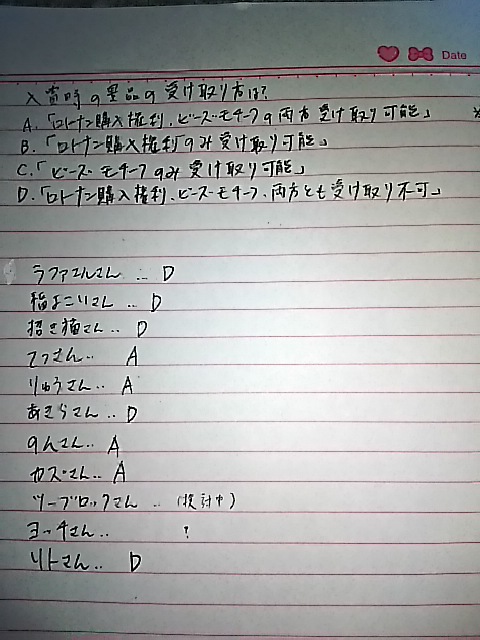 Date
入賞時の景品の受け取り方は?
A.「ロトナン購入権利、ビーズモチーフの両方受け取り可能」
B.「ロトナン購入権利」のみ受け取り可能」
C.「ビーズモチーフのみ受け取り可能」
D.「ロトナン購入権利、ビーズモチーフ、両方とも受け取り不可」
ラファエルさん‥ D
稲よこいさん‥ D
招き猫さん‥ D
てつさん‥ A
りゅうさん‥ A
あきらさん‥ D
のんさん‥ A
カズさん‥ A
ツーブロックさん‥ (検討中)
ヨッチさん‥ ?
リトさん‥ D